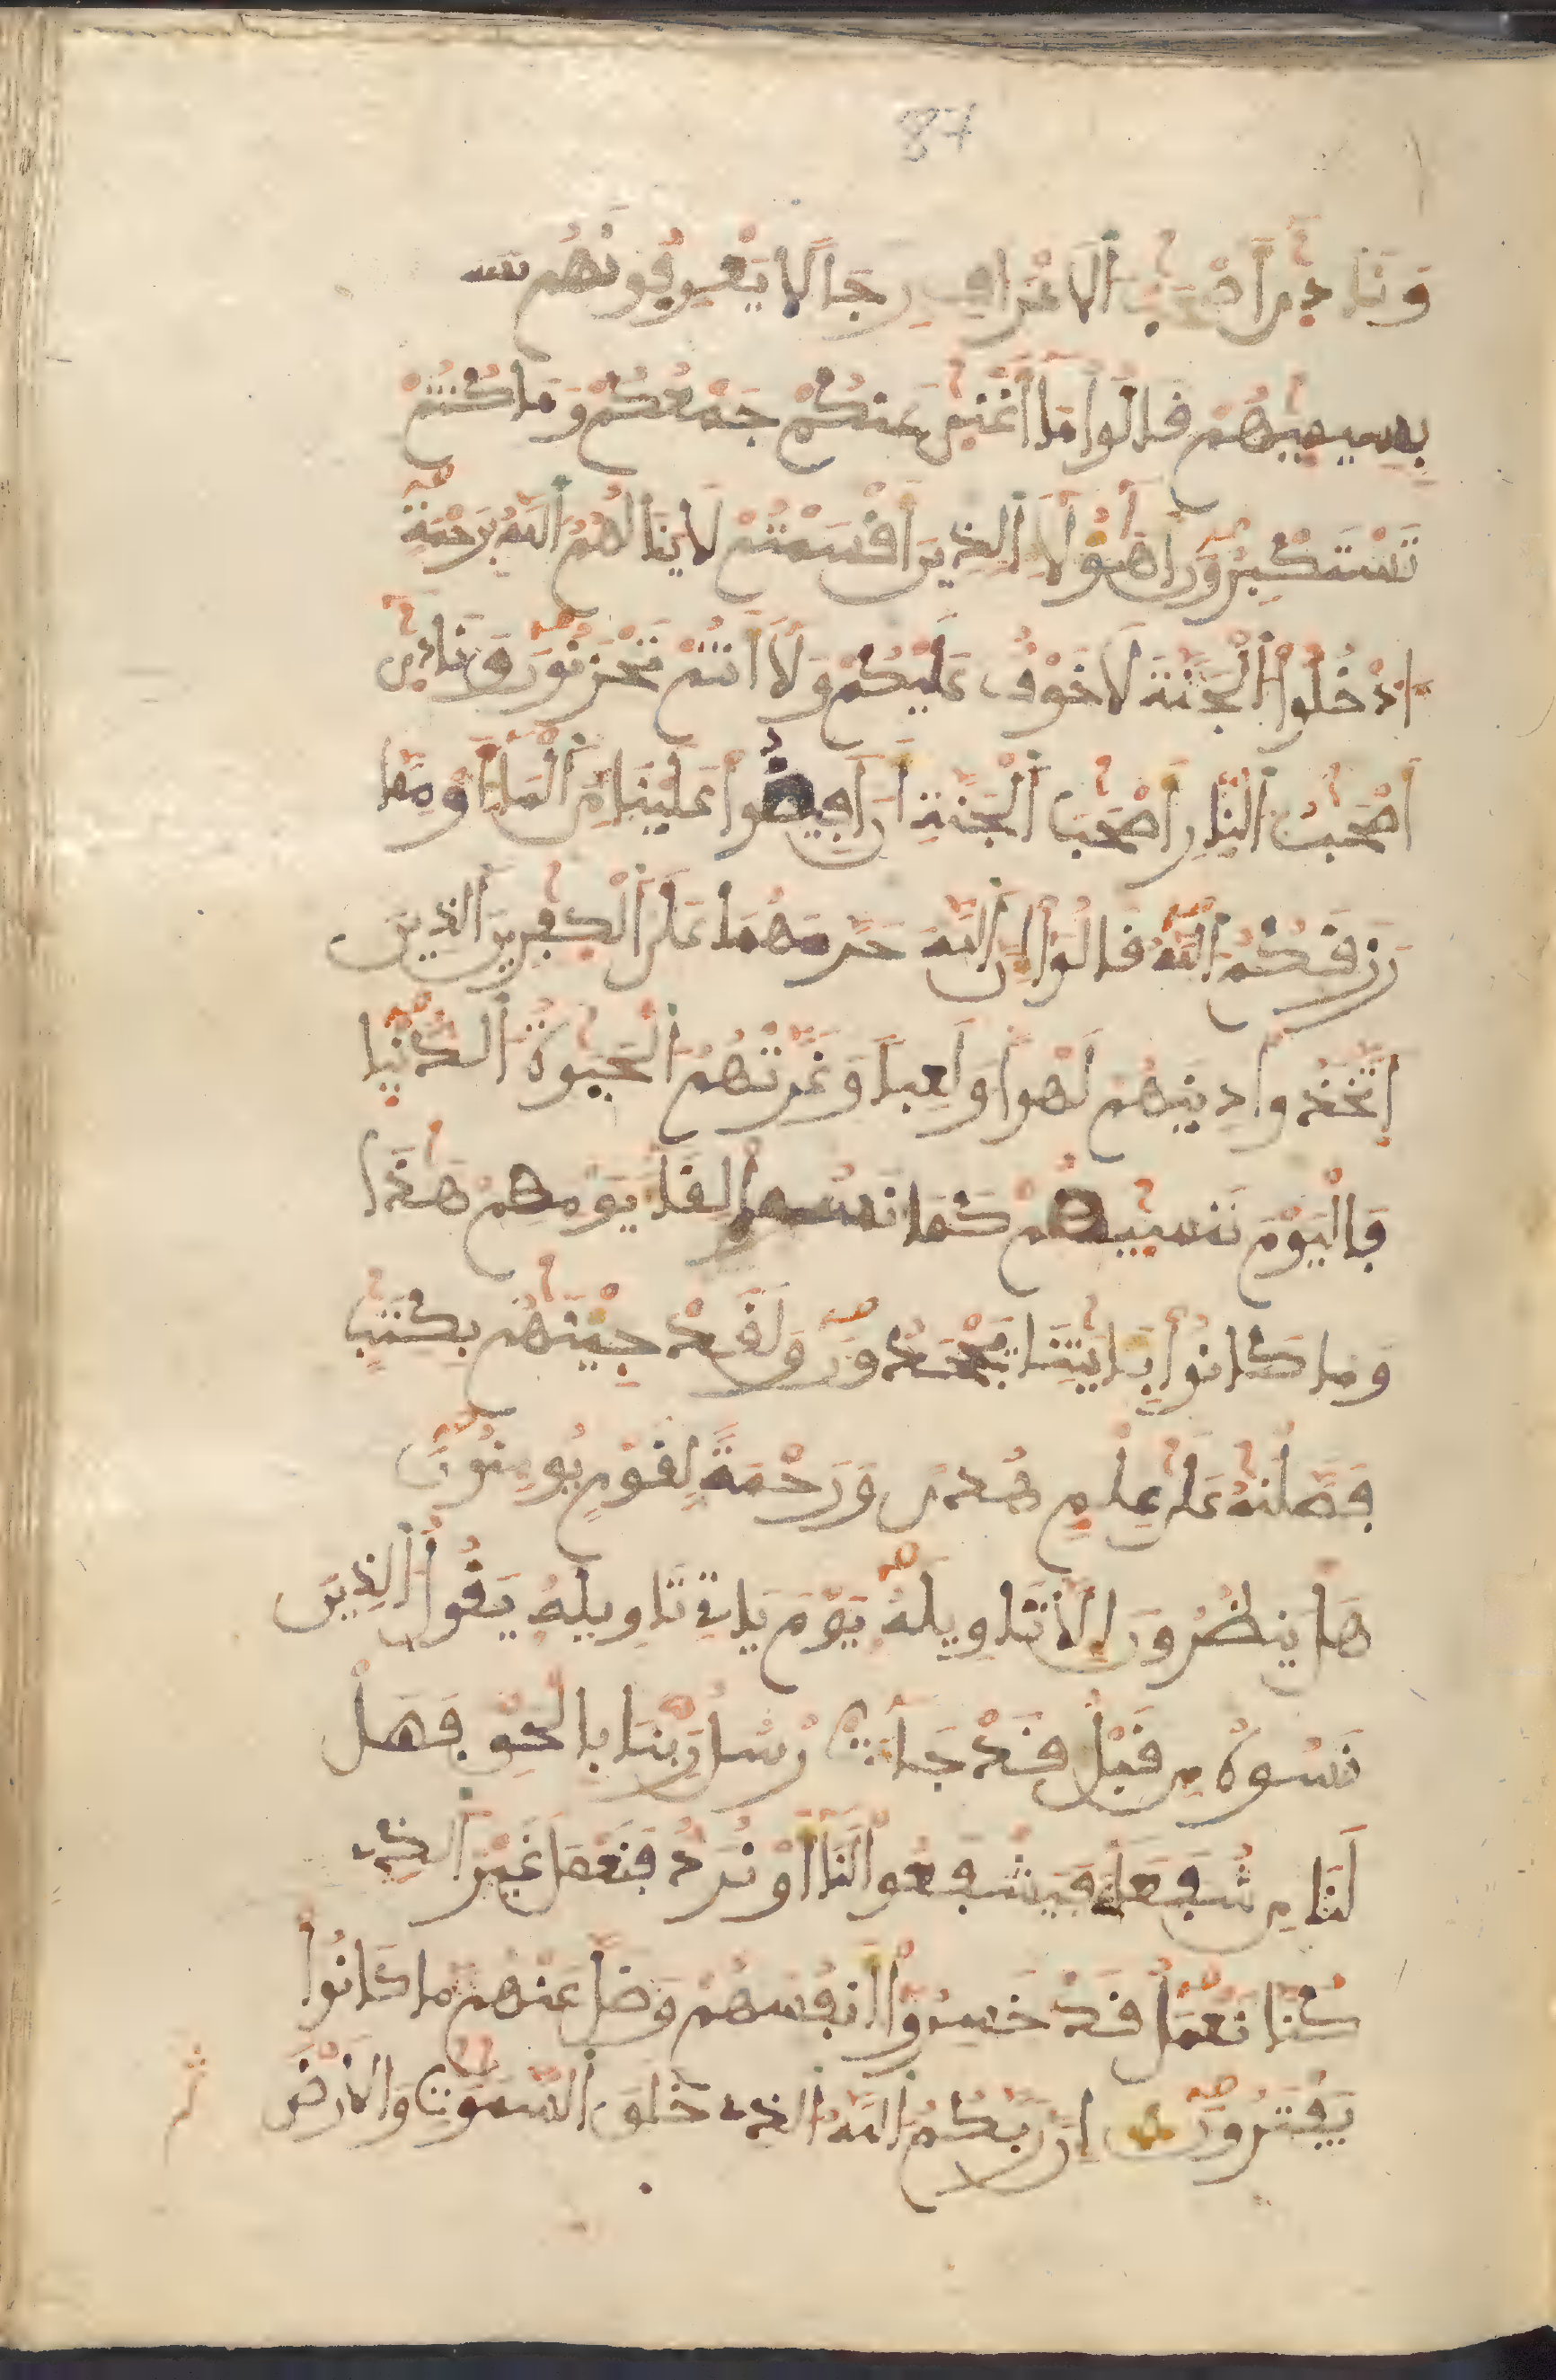 87
وَنَادِىٰٓ أَصْحَٰبُ ٱلَاعْرَافِ رِجَالًا يَعْرِفُونَهُم
بِسِيمٰيهُمْ قَالُواْ مَآ أَغْنِىٰ عَنكُمْ جَمْعُكُمْ وَمَا كُنتُمْ
تَسْتَكْبِرُونَ أَهَٰٓؤُلَآءِ ٱلذِينَ أَقْسَمْتُمْ لَا يَنَالُهُمُ ٱللَّهُ بِرَحْمَةٍ
ادْخُلُواْ ٱلْجَنَّةَ لَا خَوْفٌ عَلَيْكُمْ وَلَآ أَنتُمْ تَحْزَنُونَ وَنَادِىٰٓ
أَصْحَٰبُ ٱلنّارِ أَصْحَٰبَ ٱلْجَنَّةِ أَنَ اَفِيضُواْ عَلَيْنَا مِنَ ٱلْمَآءِ اَوْ مِمَّا
رَزَقَكُمُ ٱللَّهُ قَالُوٓاْ إِنَّ ٱللَّهَ حَرَّمَهُمَا عَلَى ٱلْكٰفِرِينَ ٱلذِينَ
اَتَّخَذُواْ دِينَهُمْ لَهْواً وَلَعِباً وَغَرَّتْهُمُ ٱلْحَيَوٰةُ ٱلدُّنْيٰا
فَالْيَوْمَ نَنسٰيهُمْ كَمَا نَسُواْ لِقَآءَ يَوْمِهِمْ هَٰذَا
وَمَا كَانُواْ بِـَٔايَٰتِنَا يَجْحَدُونَ وَلَقَدْ جِئْنَٰهُم بِكِتَٰبٍ
فَصَّلْنَٰهُ عَلَىٰ عِلْمٍ هُدىً وَرَحْمَةً لِّقَوْمٍ يُومِنُونَ
هَلْ يَنظُرُونَ إِلَّا تَاوِيلَهُۥ يَوْمَ يَاتِے تَاوِيلُهُۥ يَقُولُ ٱلذِينَ
نَسُوهُ مِن قَبْلُ قَدْ جَآءَتْ رُسُلُ رَبِّنَا بِالْحَقِّ فَهَل
لَّنَا مِن شُفَعَآءَ فَيَشْفَعُواْ لَنَآ أَوْ نُرَدُّ فَنَعْمَلَ غَيْرَ ٱلذِے
كُنَّا نَعْمَلُ قَدْ خَسِرُوٓاْ أَنفُسَهُمْ وَضَلَّ عَنْهُم مَّا كَانُواْ
يَفْتَرُونَ إِنَّ رَبَّكُمُ ٱللَّهُ ٱلذِے خَلَقَ ٱلسَّمَٰوَٰتِ وَٱلَارْضَ